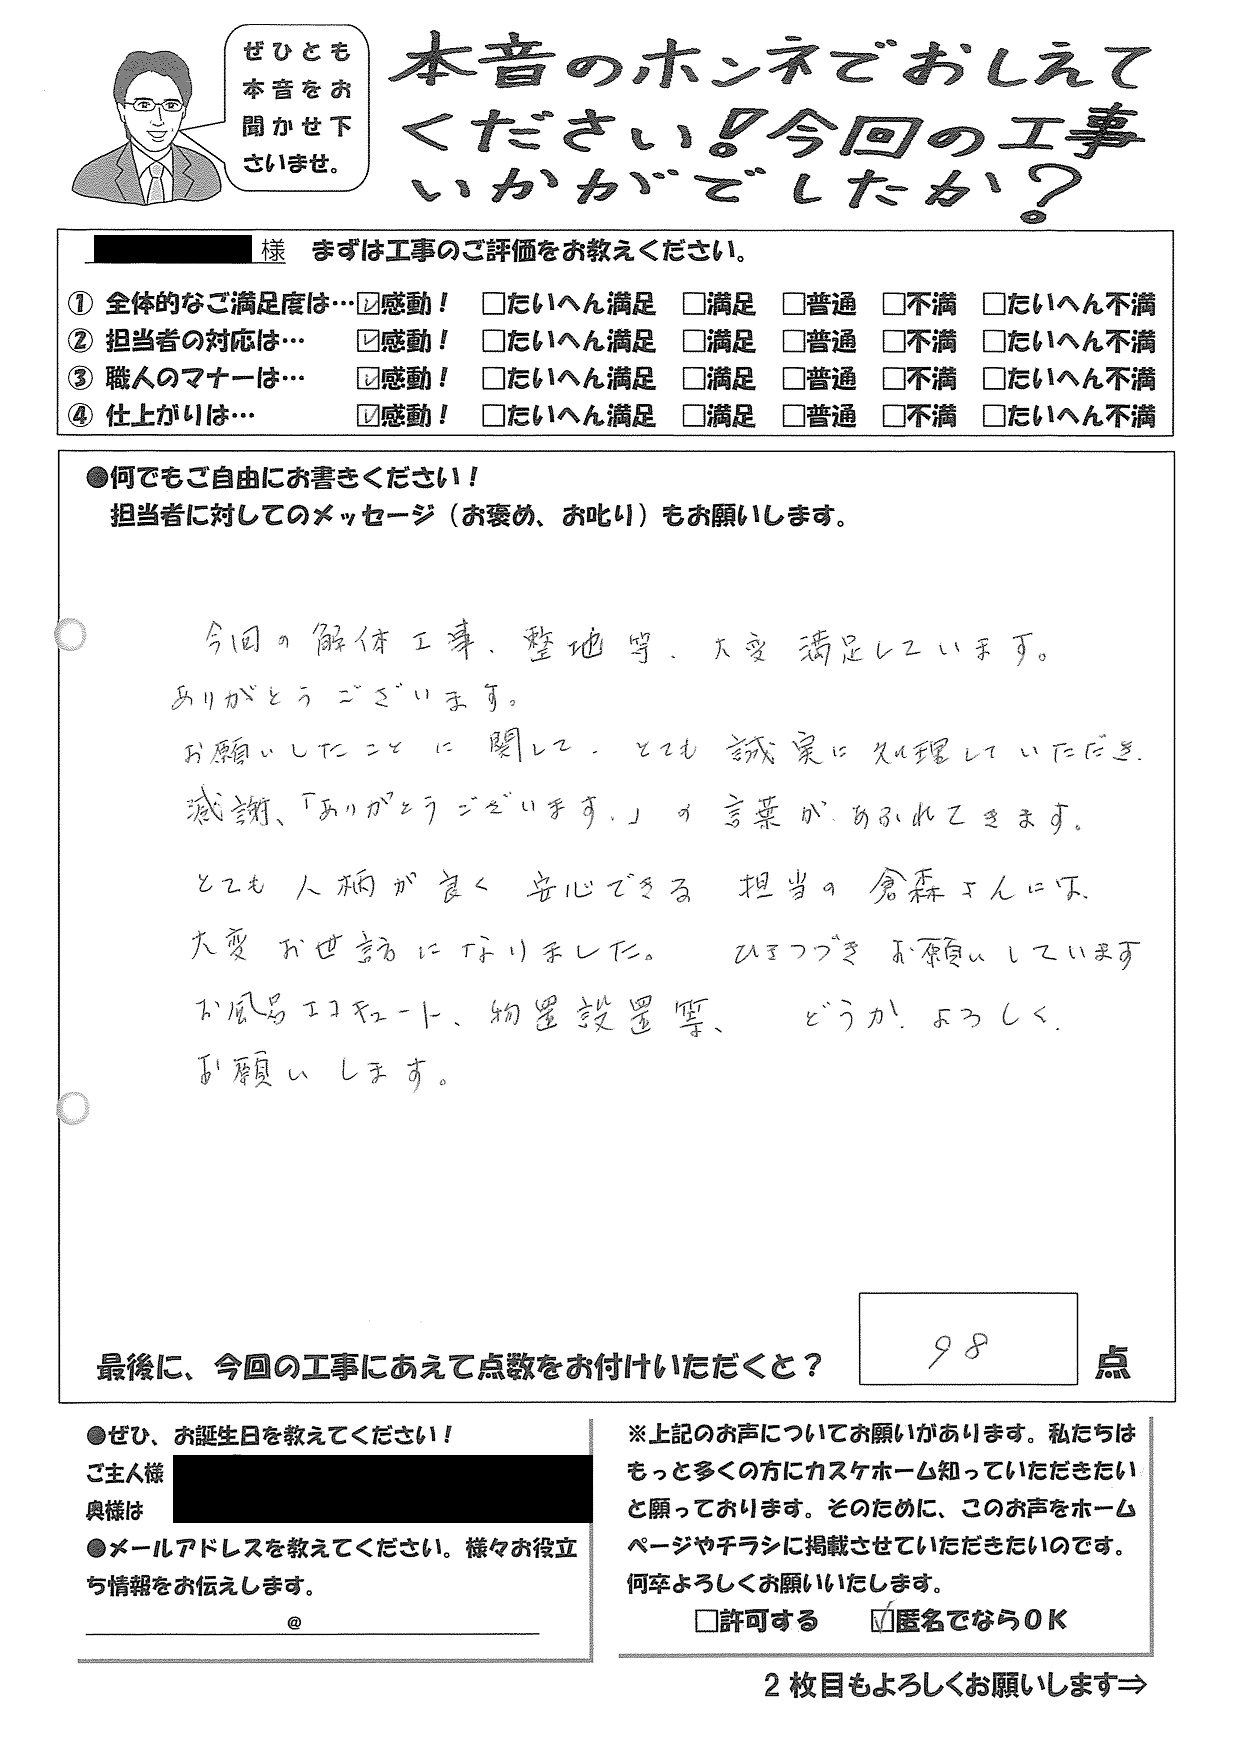 ぜひとも
本音をお
聞かせ下
さいませ。
本音のホンネでおしえて
ください!今回の工事
いかがでしたか?
様 まずは工事のご評価をお教えください。
① 全体的なご満足度は…☑感動! □たいへん満足 □満足 □普通 □不満 □たいへん不満
② 担当者の対応は… ☑感動! □たいへん満足 □満足 □普通 □不満 □たいへん不満
③ 職人のマナーは… ☑感動! □たいへん満足 □満足 □普通 □不満 □たいへん不満
④ 仕上がりは… ☑感動! □たいへん満足 □満足 □普通 □不満 □たいへん不満
●何でもご自由にお書きください!
担当者に対してのメッセージ(お褒め、お叱り)もお願いします。
今回の解体工事、整地等、大変満足しています。
ありがとうございます。
お願いしたことに関して、とても誠実に処理していただき、
感謝、「ありがとうございます。」の言葉があふれてきます。
とても人柄が良く安心できる担当の倉森さんには、
大変お世話になりました。 ひきつづきお願いしています
お風呂エコキュート、物置設置等、 どうか、よろしく、
お願いします。
最後に、今回の工事にあえて点数をお付けいただくと? 98 点
●ぜひ、お誕生日を教えてください!
ご主人様
奥様は
●メールアドレスを教えてください。様々お役立
ち情報をお伝えします。
@
※上記のお声についてお願いがあります。私たちは
もっと多くの方にカスケホーム知っていただきたい
と願っております。そのために、このお声をホーム
ページやチラシに掲載させていただきたいのです。
何卒よろしくお願いいたします。
□許可する ☑匿名でならOK
2枚目もよろしくお願いします⇒